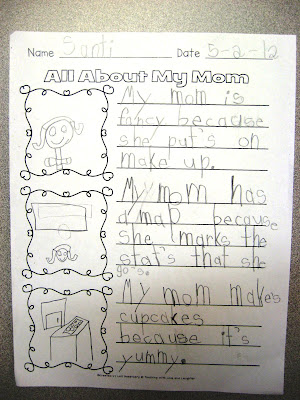 Name Santi Date 5-2-12
All About My Mom
My mom is
fancy because
she put's on
make up.
My mom has
a map because
she marks the
stat's that she
go's.
My mom makes
cupcakes
because it's
yummy.